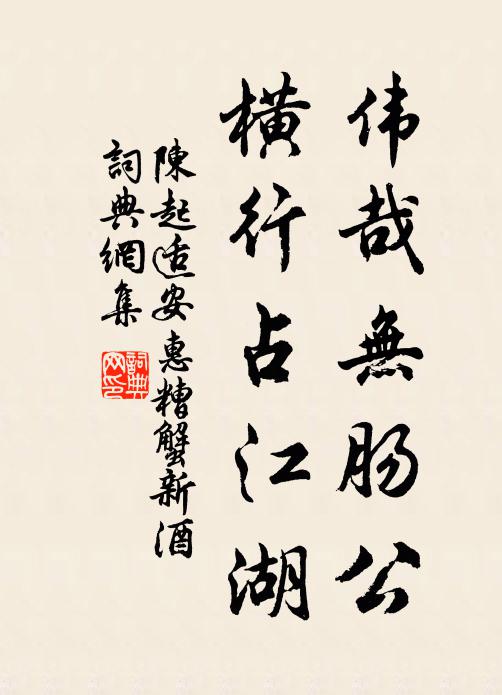 伟哉無肠公
横行占江湖
陳起适安惠糟蟹新酒
詞典網集
詞典网印